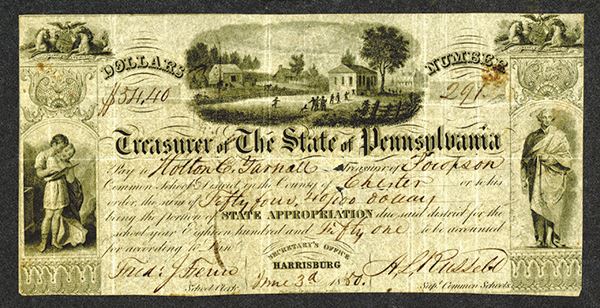 DOLLARS
NUMBER
$54.40
291
Treasurer of The State of Pennsylvania
Pay to Holton C. Garnall Treasurer of
Common School District in the County of Chester or to his
order, the sum of Fifty four, 40/100 dollars
being the portion of STATE APPROPRIATION due said district for the
school year Eighteen hundred and Fifty one to be accounted
for according to law
SECRETARY'S OFFICE
HARRISBURG
June 3d 1850.
School Clerk.
Supt Common Schools.